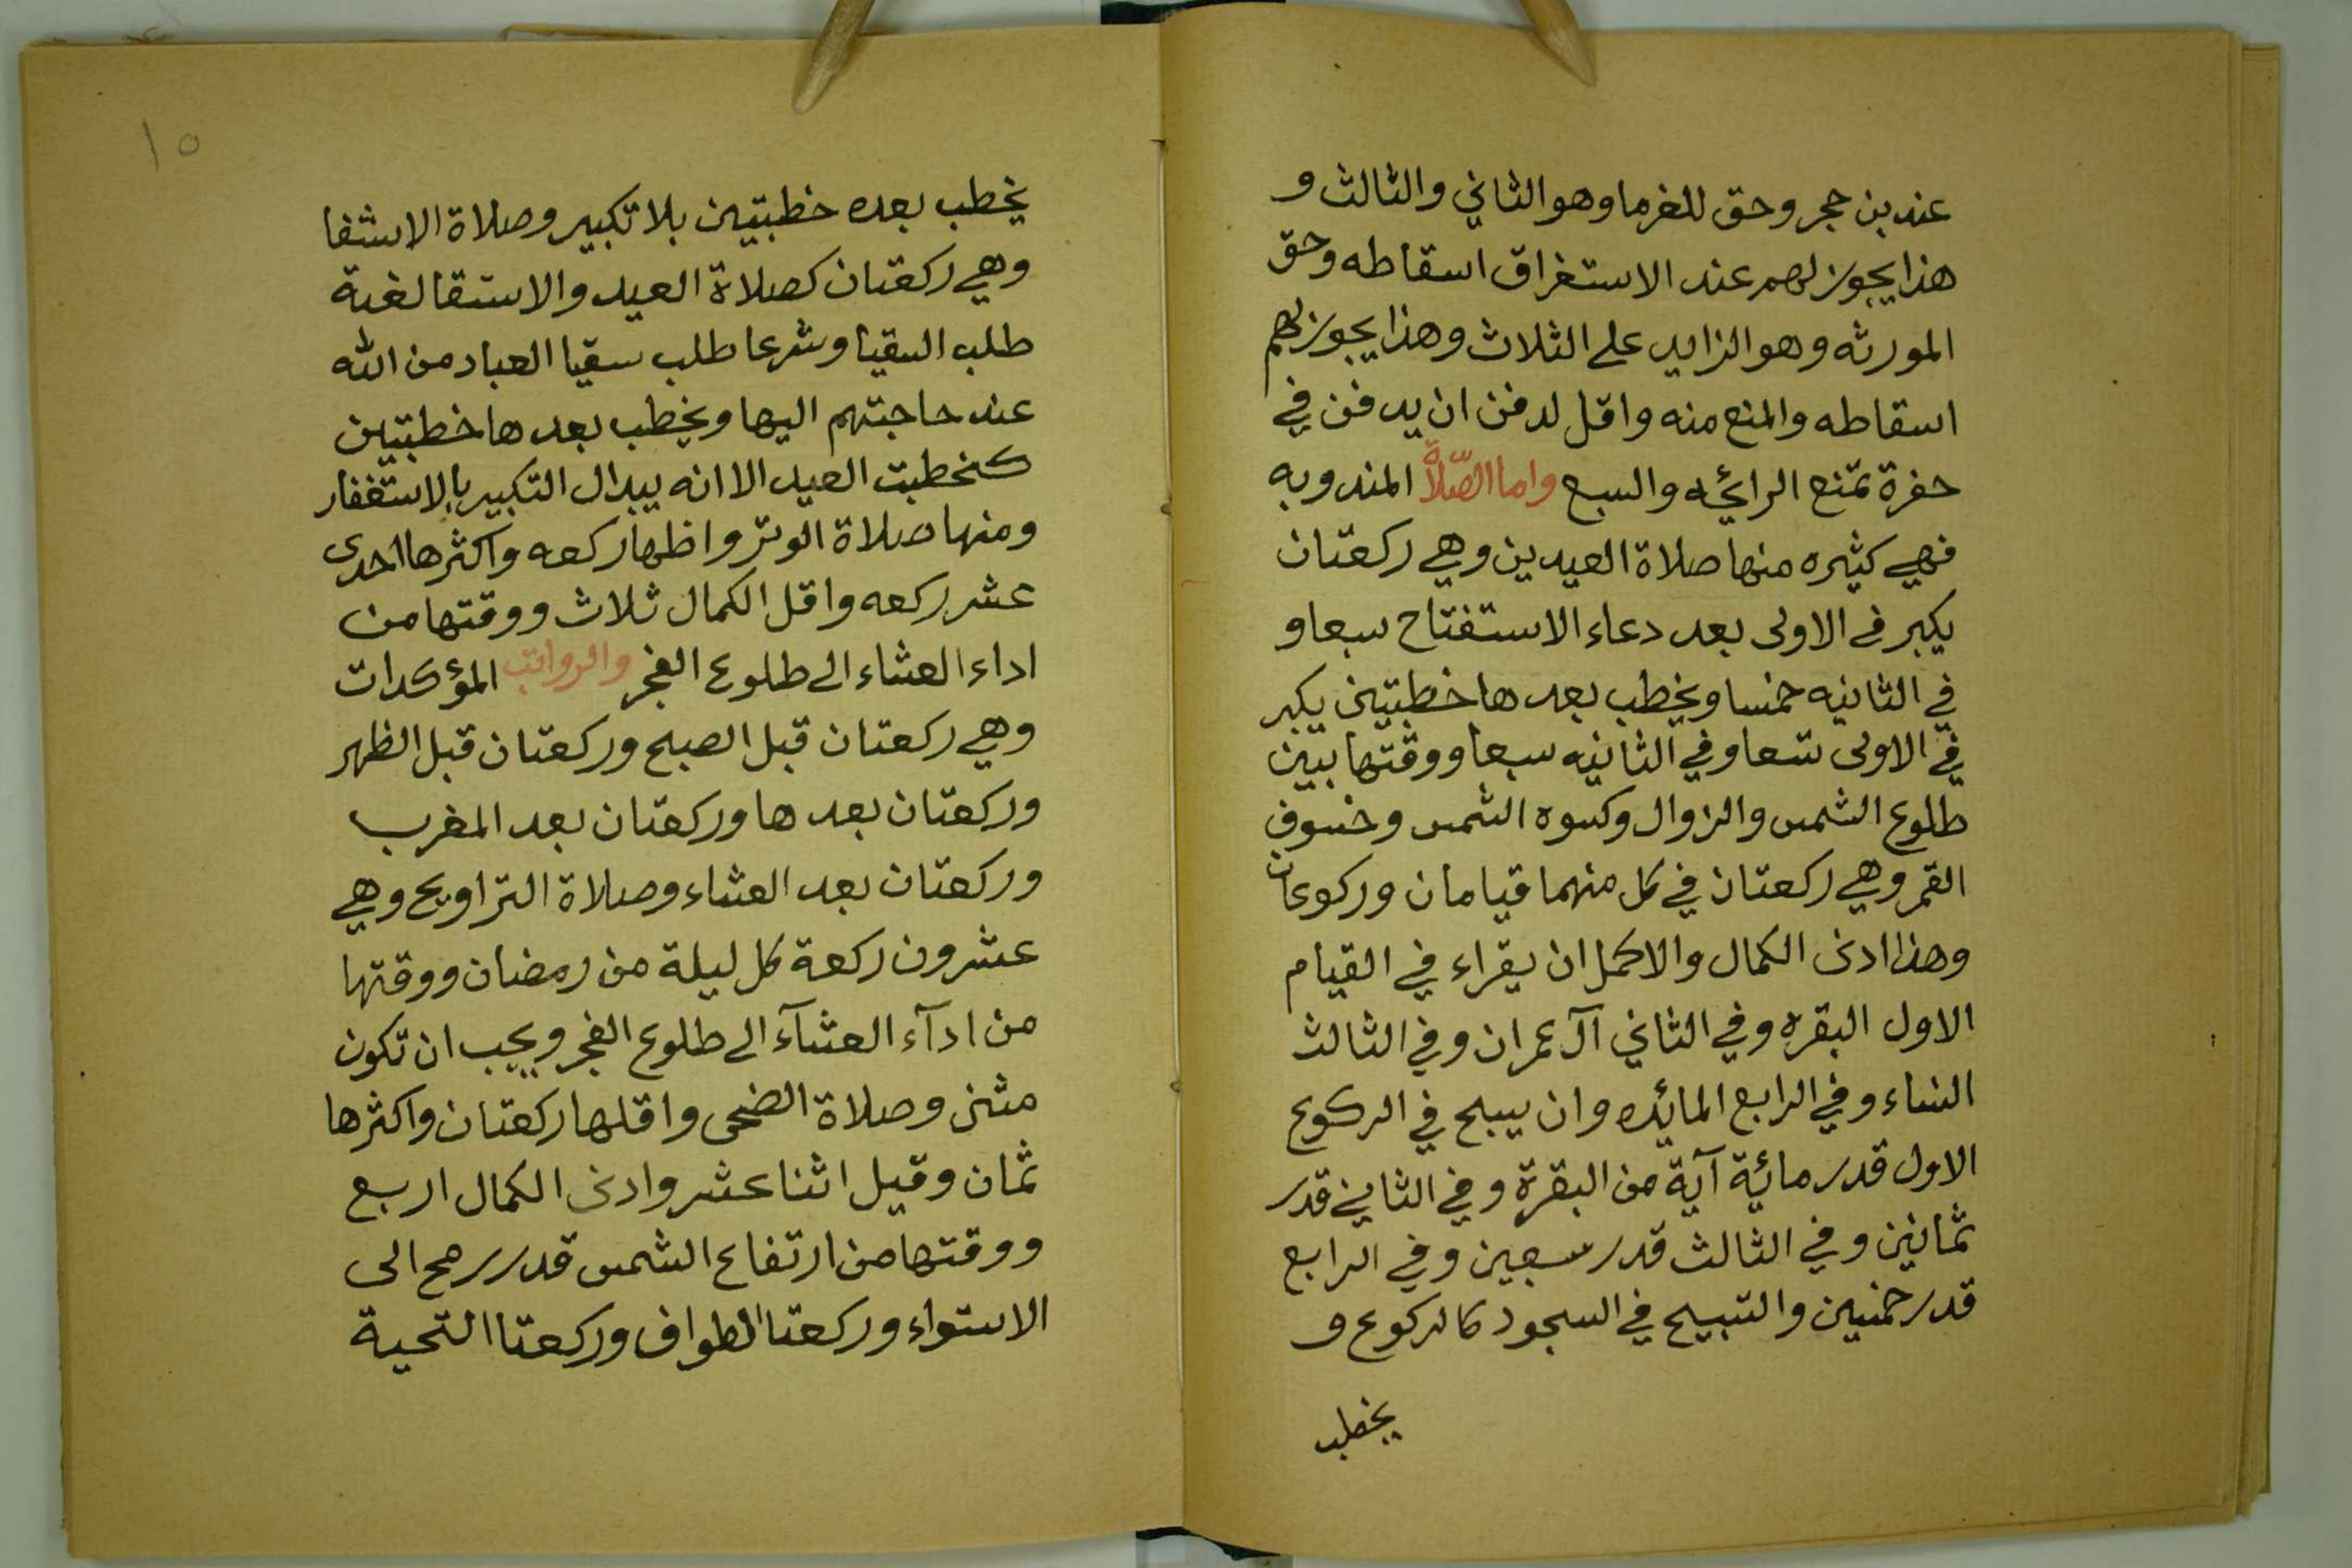 عند بن حجر وحق للغرما وهو الثاني والثالث و
هذا يجوز لهم عند الاستغراق اسقاطه وحق
المورثه وهو الزايد على الثلاث وهذا يجوز لهم
اسقاطه والمنع منه واقل لدفن ان يدفن في
حفرة تمنع الرائحه والسبع واما الصّلاة المندوبه
فهي كثيره منها صلاة العيدين وهي ركعتان
يكبر في الاولى بعد دعاء الاستفتاح سبعا و
في الثانيه خمسا ويخطب بعدها خطبتين يكبر
في الاولى تسعا وفي الثانيه سبعا ووقتها بين
طلوع الشمس والزوال وكسوه الشمس وخسوف
القمر وهي ركعتان في كل منهما قيامان وركوعان
وهذا ادنى الكمال والاكمل ان يقراء في القيام
الاول البقره وفي الثاني آل عمران وفي الثالث
النساء وفي الرابع المائده وان يسبح في الركوع
الاول قدر مائية آية من البقرة وفي الثاني قدر
ثمانين وفي الثالث قدر سبعين وفي الرابع
قدر خمسين والتسبيح في السجود كالركوع و
يخطب
١٥
يخطب بعده خطبتين بلا تكبير وصلاة الاستقا
وهي ركعتان كصلاة العيد والاستقا لغة
طلب السقيا وشرعا طلب سقيا العباد من الله
عند حاجتهم اليها ويخطب بعدها خطبتين
كخطبت العيد الا انه يبدال التكبير بالاستغفار
ومنها صلاة الوتر واظها ركعه واكثرها احدى
عشر ركعه واقل الكمال ثلاث ووقتها من
اداء العشاء الى طلوع الفجر والرواتب المؤكدات
وهي ركعتان قبل الصبح وركعتان قبل الظهر
وركعتان بعدها وركعتان بعد المغرب
وركعتان بعد العشاء وصلاة التراويح وهي
عشرون ركعة كل ليلة من رمضان ووقتها
من ادآء العشآء الى طلوع الفجر ويجب ان تكون
مثنى وصلاة الضحى واقلها ركعتان واكثرها
ثمان وقيل اثنا عشر وادنى الكمال اربع
ووقتها من ارتفاع الشمس قدر رمح الى
الاستواء وركعتا الطواف وركعتا التحية